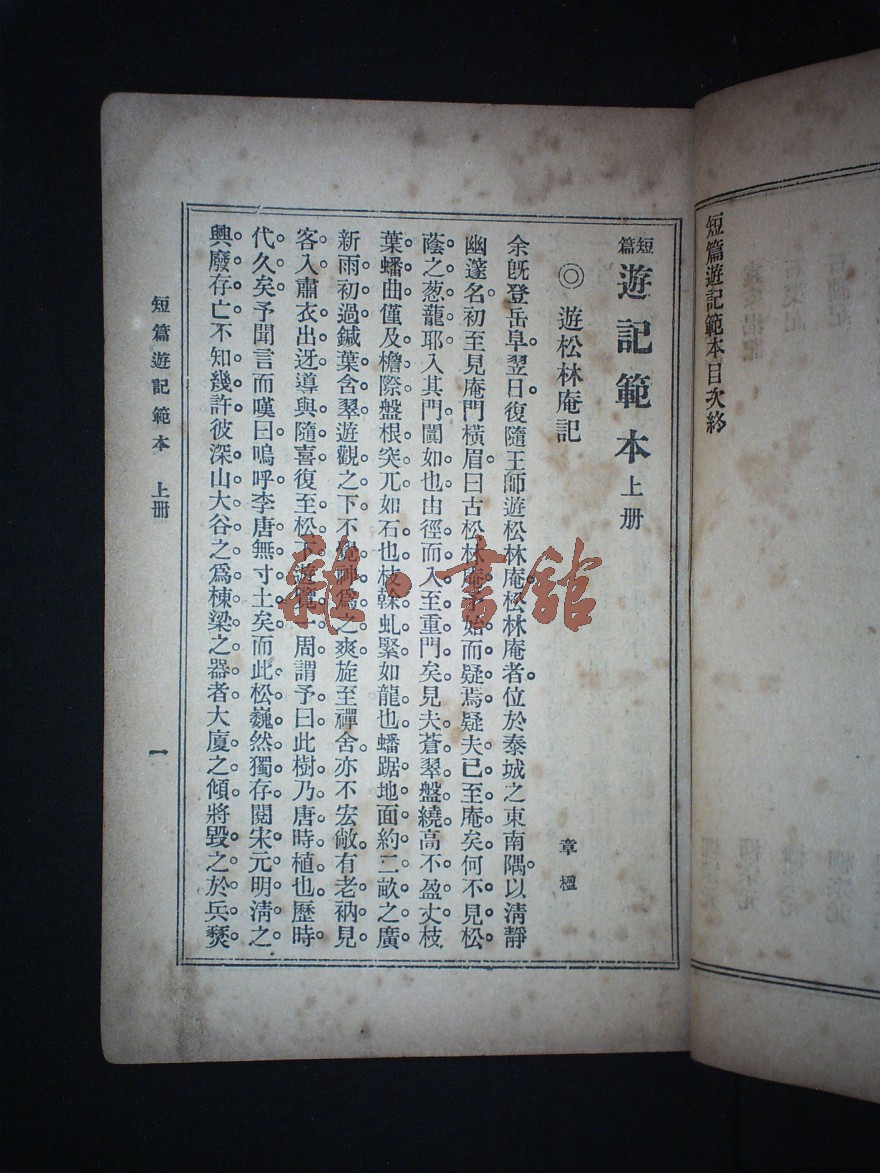 短篇遊記範本目次終
短篇遊記範本 上册
◎遊松林庵記
章楹
余旣登岳阜。翌日復隨王師遊松林庵。松林庵者位於泰城之東南隅。以淸靜
幽邃名。初至見庵門橫眉曰古松林庵。予始而疑焉。疑夫已至庵矣。何不見松
蔭之葱蘢耶。入其門闃如也。由徑而入至重門矣。見夫蒼翠盤繞。高不盈丈。枝
葉蟠曲。僅及檐際。盤根突兀如石也。枝榦虬緊如龍也。蟠踞地面約二畝之廣。
新雨初過。鍼葉含翠。遊觀之下。不覺神爲之爽。旋至禪舍。亦不宏敞。有老衲見
客入。肅衣出迓。導與隨喜。復至松下遊覽一周。謂予曰。此樹乃唐時植也。歷時
代久矣。予聞言而嘆曰。嗚呼。李唐無寸土矣。而此松巍然獨存。閱宋元明淸之
興廢存亡。不知幾許。彼深山大谷之爲棟梁之器者。大廈之傾。將毀之於兵燹。
短篇遊記範本 上册
一
雜·書館